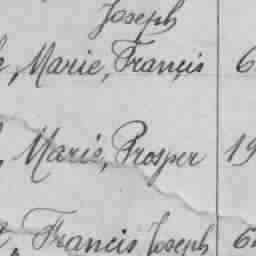 Joseph
, Marie, Françis 6
, Marie, Prosper 19
, Francis Joseph 6